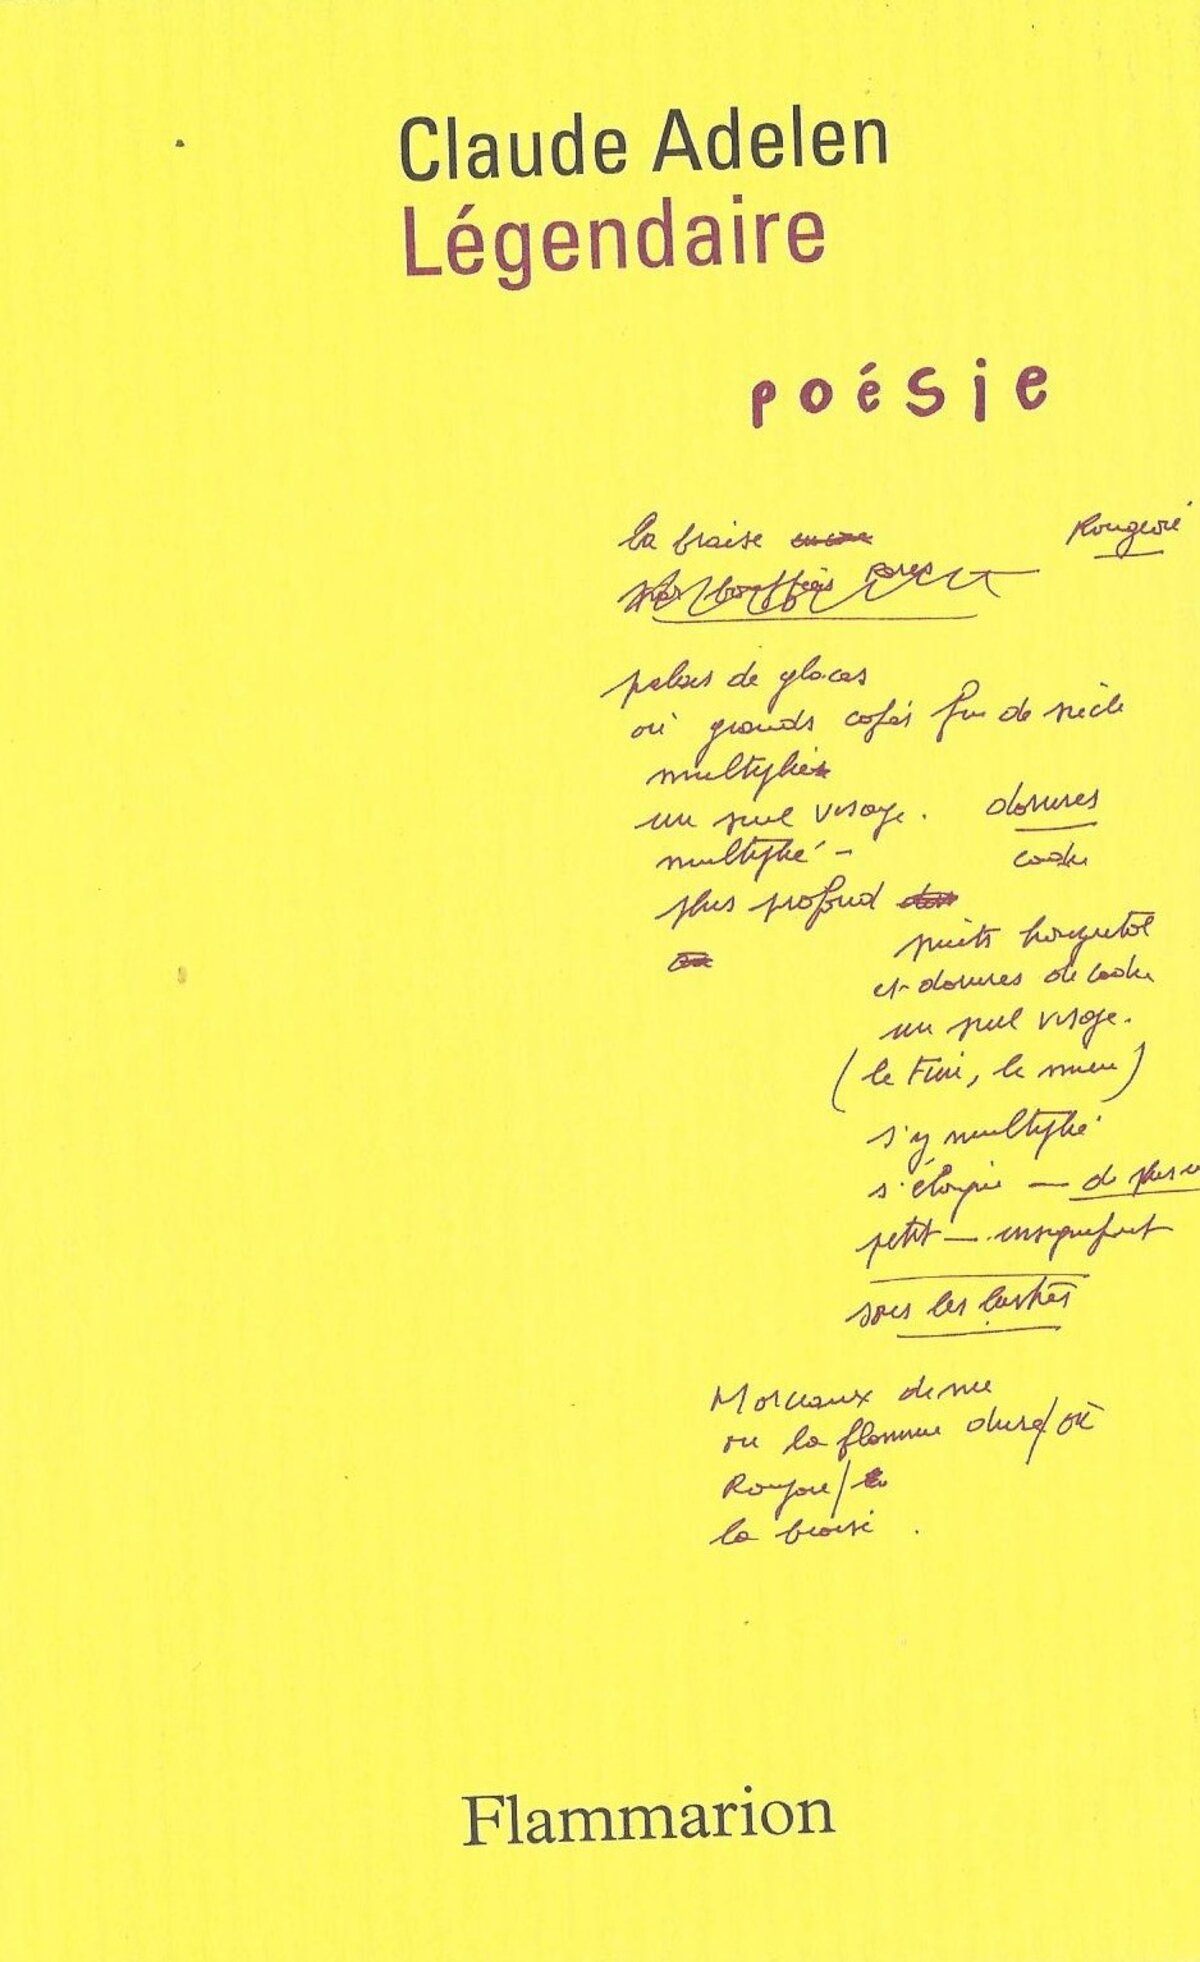 Claude Adelen
Légendaire
poésie
la braise
Rougeoie
palais de glaces
où grands cafés fin de siècle
multipliés
un seul visage. dorures
multiplié - cadre
plus profond
puits
et dorures de cadre
un seul visage.
(le tien, le mien)
s'y multiplie
s'éloigne — de plus
petit — insignifiant
sous les lustres
Morceaux de
ou la flamme dure/où
Rougeoie/
la braise .
Flammarion